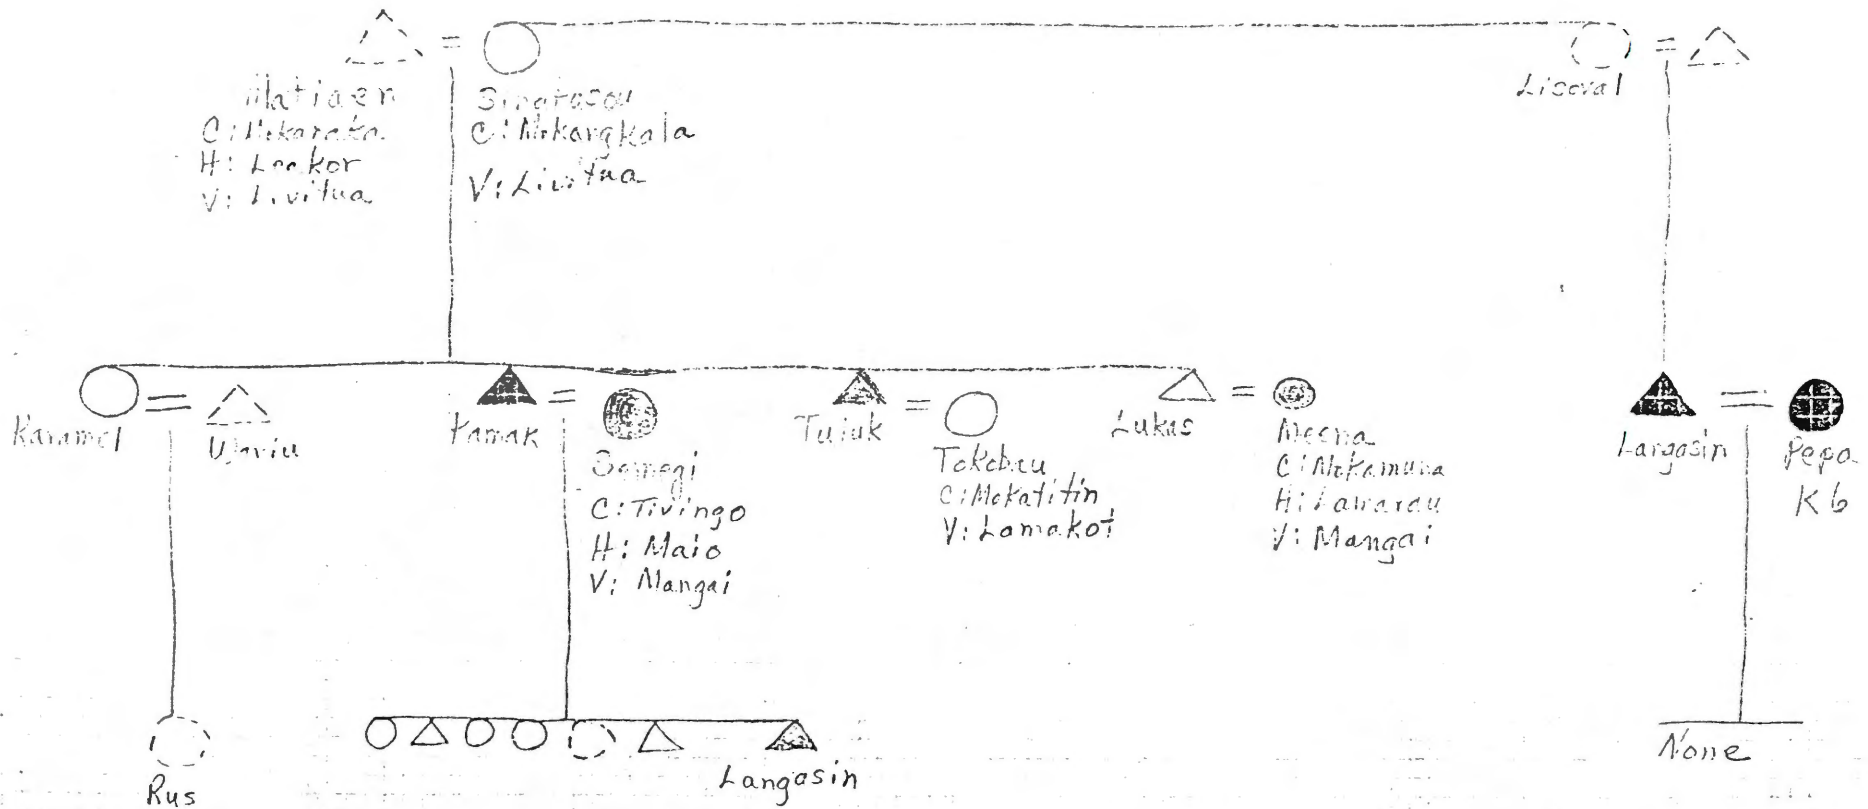 Matiaen
C: Mokaraka
H: Leakor
V: Livitua
C: Mokangkala
V: Livitua
Liseval
Karamel
Kamak
Somegi
C: Tivingo
H: Maio
V: Mangai
Tuluk
Tokobau
C: Mokatitin
V: Lamakot
Lukas
Meena
C: Mokamuna
H: Lawarau
V: Mangai
Largasin
Pepa
K6
Rus
Langasin
None